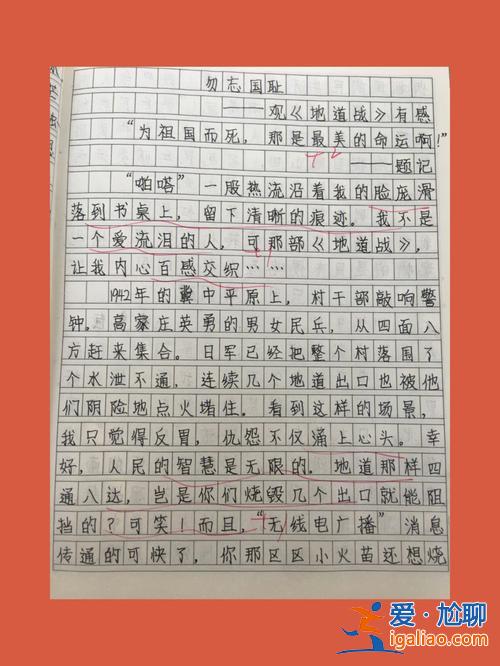 勿忘国耻
——观《地道战》有感
“为祖国而死，那是最美的命运啊！”
——题记
“啪嗒”一股热流沿着我的脸庞滑
落到书桌上，留下清晰的痕迹。我不是
一个爱流泪的人，可那部《地道战》，
让我内心百感交织……
1942年的冀中平原上，村干部敲响警
钟。高家庄英勇的男女民兵，从四面八
方赶来集合。日军已经把整个村落围了
个水泄不通，连续几个地道出口也被他
们阴险地点火堵住。看到这样的场景，
我只觉得反胃，仇怨不仅涌上心头。幸
好，人民的智慧是无限的。地道那样四
通八达，岂是你们烧毁几个出口就能阻
挡的？可笑！而且，“无线电广播”消息
传通的可快了，你那区区小火苗还想烧
爱·尬聊
igaliao.com